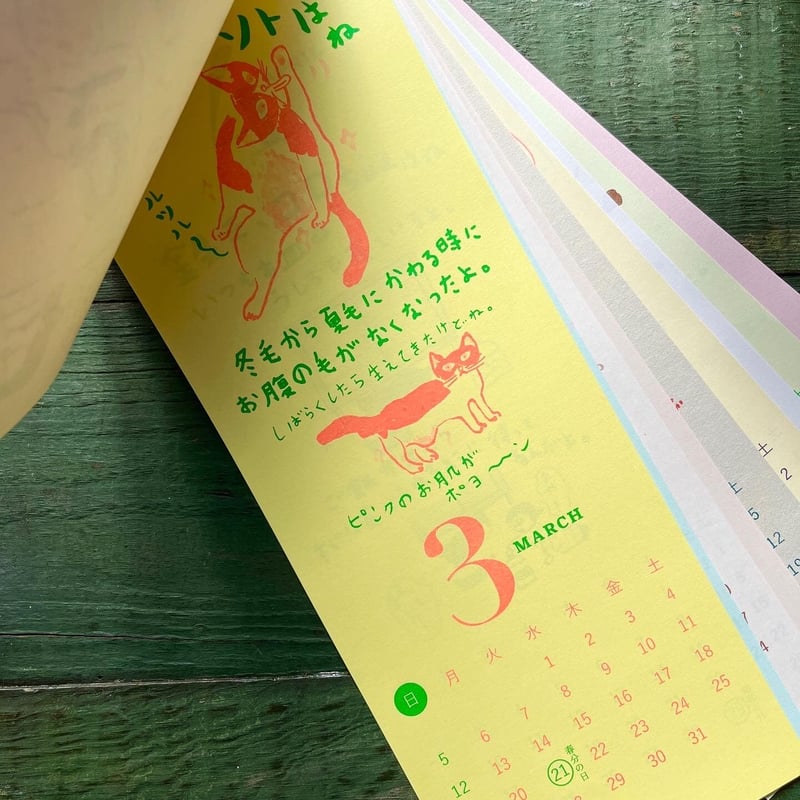 ソトはね
ルツル〜
冬毛から夏毛にかわる時に
お腹の毛がなくなったよ。
しばらくしたら生えてきたけどね。
ピンクのお肌が
ポヨ〜〜ン
3 MARCH
日 月 火 水 木 金 土
1 2 3 4
5 6 7 8 9 10 11
12 13 14 15 16 17 18
20 21 春分の日 22 23 24 25
28 29 30 31
土
2
土
5
12
19
7
4